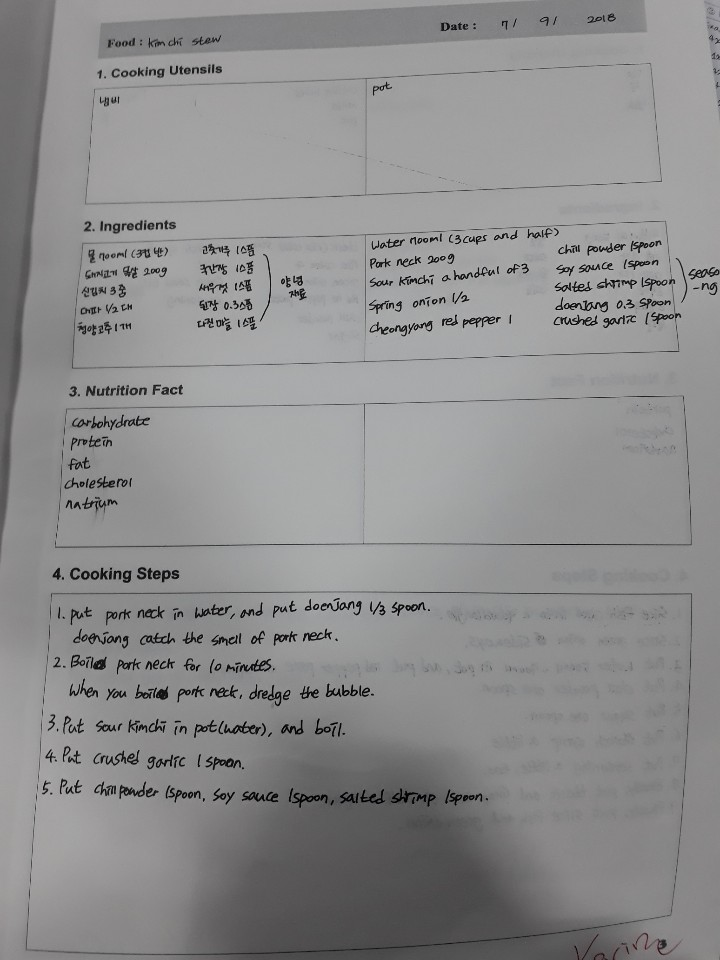 Food : kimchi stew
Date : 7 / 9 / 2018
1. Cooking Utensils
냄비
pot
2. Ingredients
물 700ml (3컵 반)
돼지고기 목살 200g
신김치 3줌
대파 1/2 대
청양고추 1개
고춧가루 1스푼
국간장 1스푼
새우젓 1스푼
된장 0.3스푼
다진마늘 1스푼
양념
재료
Water 700ml (3cups and half)
Pork neck 200g
Sour kimchi a handful of 3
Spring onion 1/2
Cheongyang red pepper 1
chili powder 1spoon
Soy sauce 1spoon
Salted shrimp 1spoon
doenjang 0.3 spoon
crushed garlic 1spoon
seaso
-ng
3. Nutrition Fact
carbohydrate
protein
fat
cholesterol
natrium
4. Cooking Steps
1. put pork neck in water, and put doenjang 1/3 spoon.
doenjang catch the smell of pork neck.
2. Boil pork neck for 10 minutes.
When you boil pork neck, dredge the bubble.
3. Put sour kimchi in pot(water), and boil.
4. Put crushed garlic 1 spoon.
5. Put chili powder 1spoon, soy sauce 1spoon, salted shrimp 1spoon.